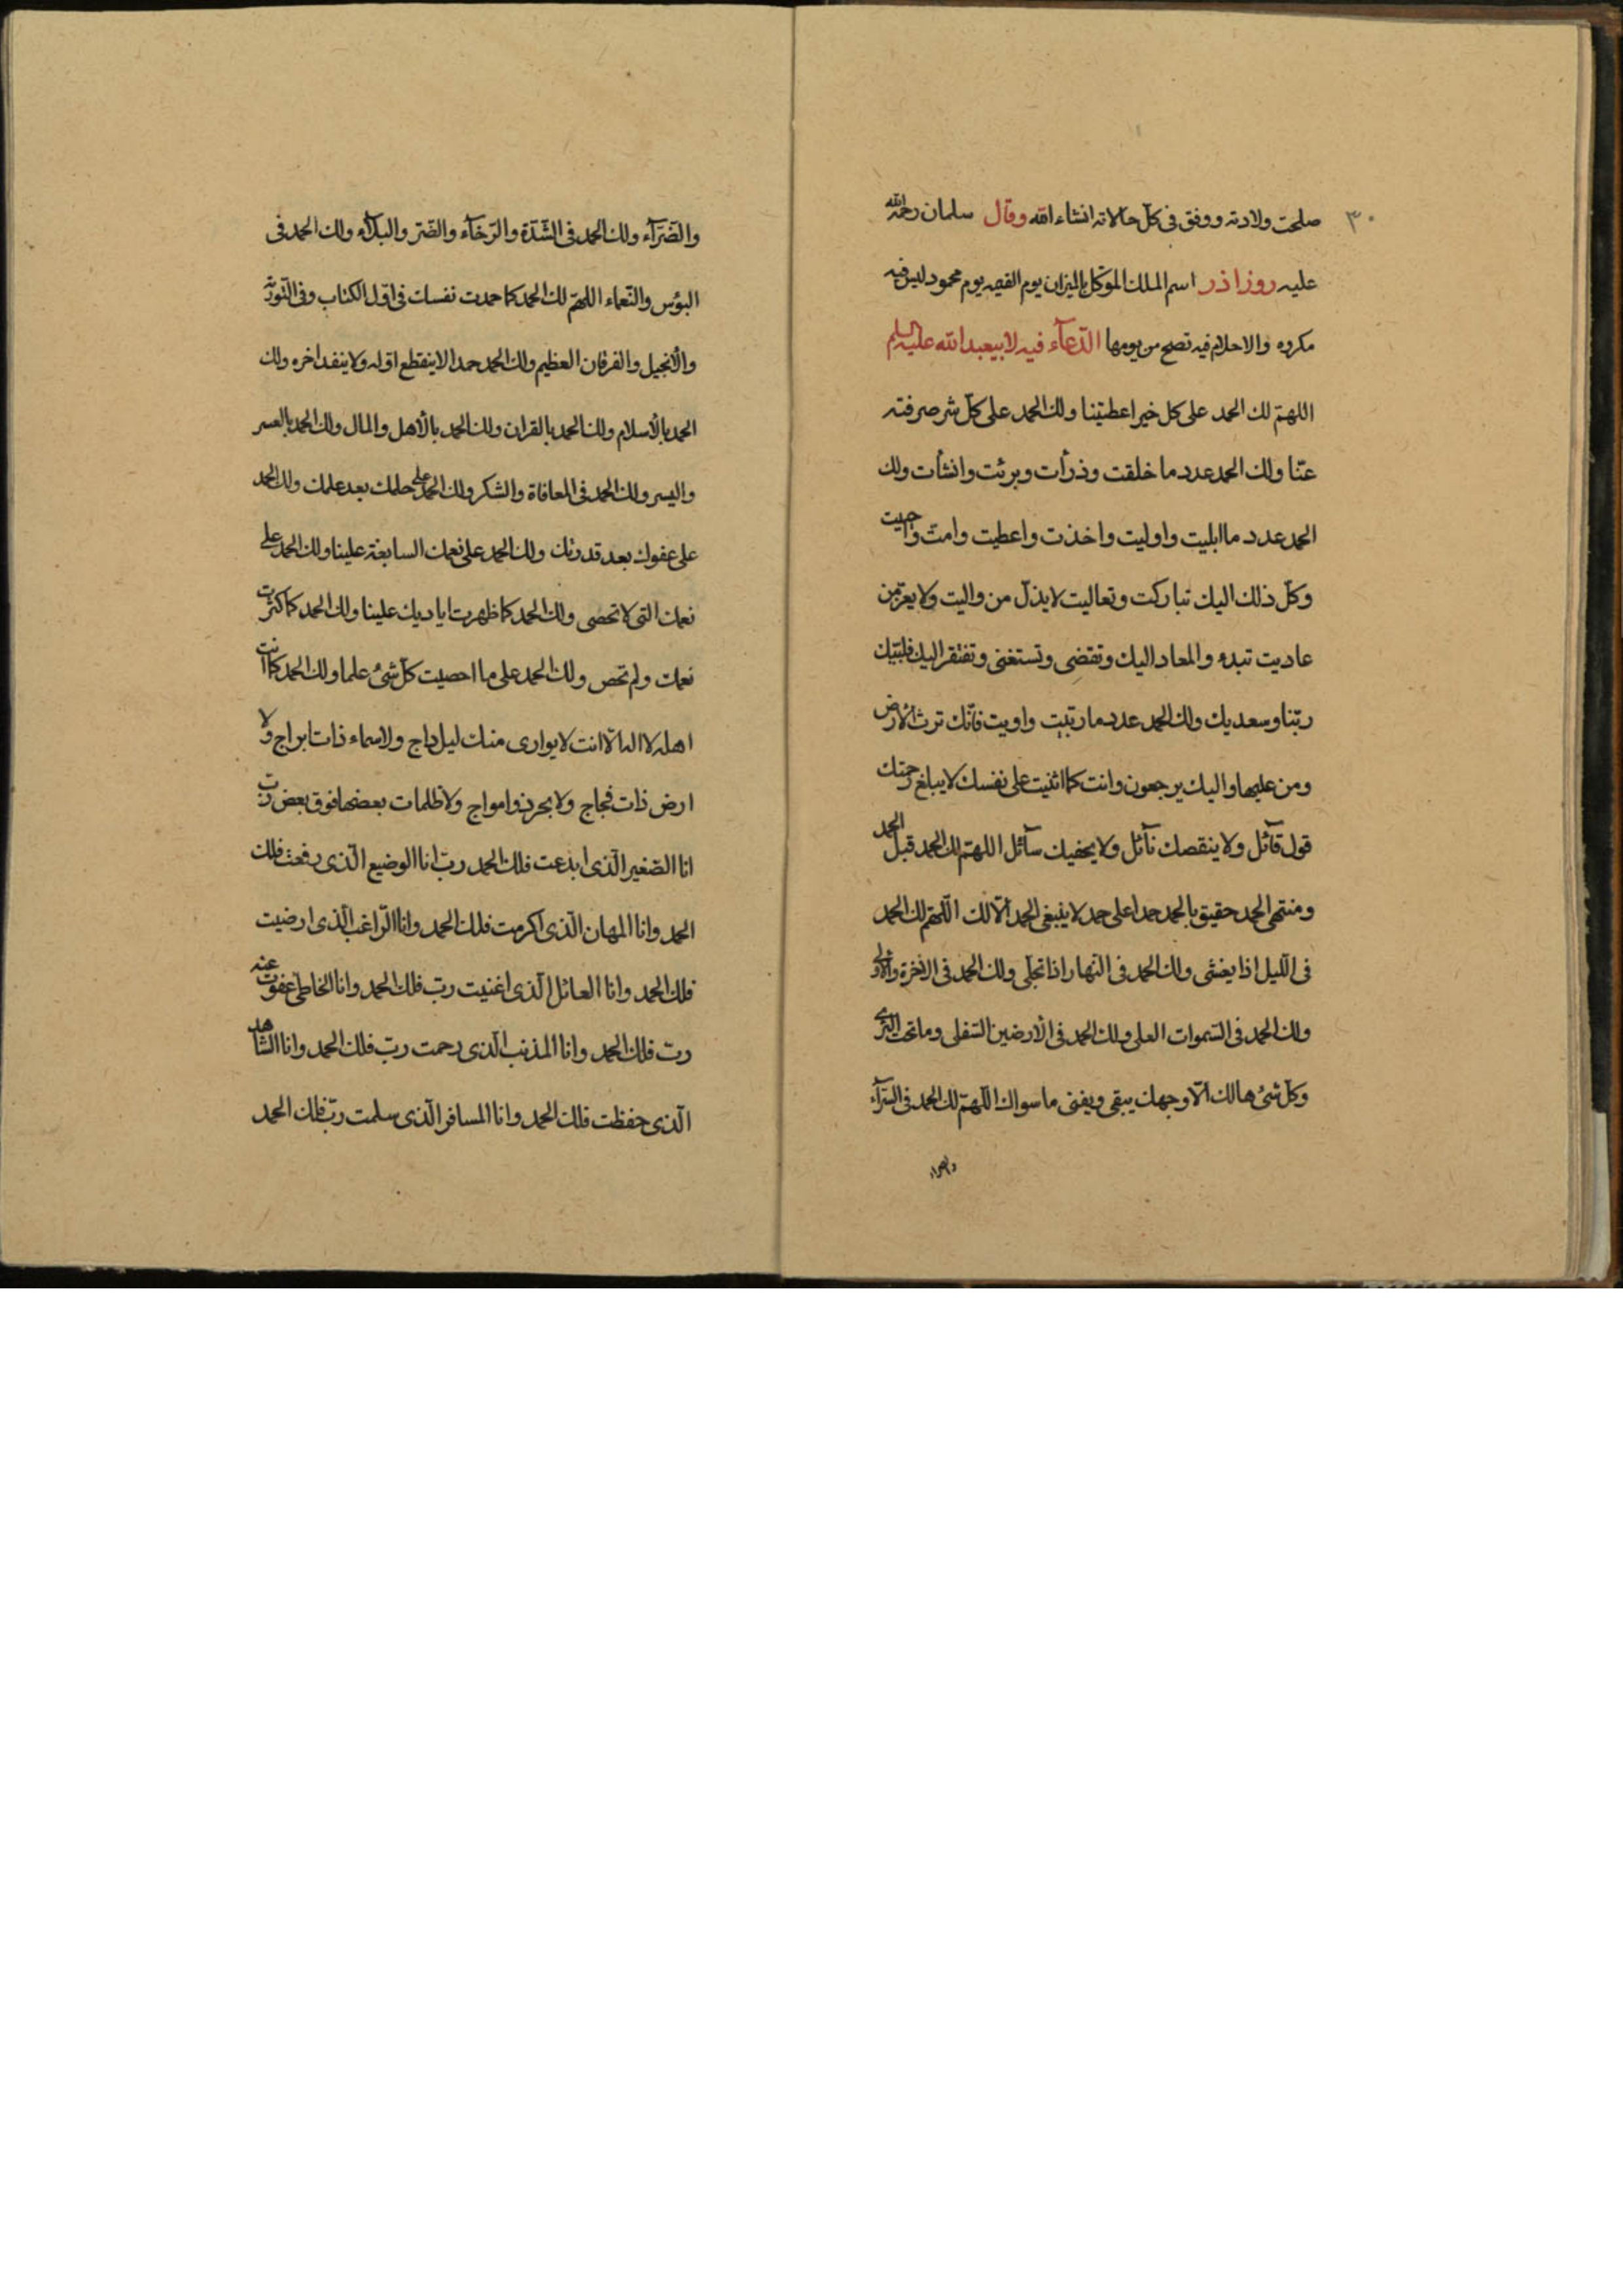 ٣٠
صلحت ولادته ووفق فى كل حالاته انشاء الله وقال سلمان رحمة الله
عليه روز اذر اسم الملك الموكل بالميزان يوم القيمه يوم محمود ليس فيه
مكروه والاحلام فيه تصح من يومها الدّعآء فيه لابيعبدالله عليه السلم
اللهمّ لك الحمد على كل خير اعطيتنا ولك الحمد على كلّ شر صرفته
عنّا ولك الحمد عدد ما خلقت وذرأت وبرئت وانشأت ولك
الحمد عدد ما ابليت واوليت واخذت واعطيت وامتّ واحييت
وكلّ ذلك اليك تباركت وتعاليت لايذلّ من واليت ولايعزّ من
عاديت تبدء والمعاد اليك وتقضى وتستغنى وتفتقر اليك فلبّيك
ربّنا وسعديك ولك الحمد عدد ما رتبت واويت فانّك ترث الارض
ومن عليها واليك يرجعون وانت كما اثنيت على نفسك لايبلغ رحمتك
قول قآئل ولاينقصك نآئل ولايحفيك سآئل اللهمّ لك الحمد قبل الحمد
ومنتهى الحمد حقيق بالحمد حمدا على حمد لاينبغى الحمد الّا لك اللّهمّ لك الحمد
فى اللّيل اذا يغشى ولك الحمد فى النّهار اذا تجلّى ولك الحمد فى الاخرة والاولى
ولك الحمد فى السّموات العلى ولك الحمد فى الارضين السّفلى وما تحت الثرى
وكلّ شئ هالك الّا وجهك يبقى ويفنى ما سواك اللّهمّ لك الحمد فى السّرآء
والضرآء
والضّرّآء ولك الحمد فى الشّدّة والرّخآء والضّر والبلآء ولك الحمد فى
البؤس والنّعماء اللهمّ لك الحمد كما حمدت نفسك فى اوّل الكتاب وفى التّورية
والأنجيل والفرقان العظيم ولك الحمد حمدا لاينقطع اوله ولاينفد اخره ولك
الحمد بالأسلام ولك الحمد بالقران ولك الحمد بالأهل والمال ولك الحمد بالعسر
واليسر ولك الحمد فى المعافاة والشكر ولك الحمد على حلمك بعد علمك ولك الحمد
على عفوك بعد قدرتك ولك الحمد على نعمك السابغة علينا ولك الحمد على
نعمك التى لاتحصى ولك الحمد كما ظهرت اياديك علينا ولك الحمد كما كثرت
نعمك ولم تحص ولك الحمد على ما احصيت كلّ شئ علما ولك الحمد كما انت
اهله لا اله الّا انت لايوارى منك ليل داج ولاسماء ذات ابراج ولا
ارض ذات فجاج ولابحر ذو امواج ولاظلمات بعضها فوق بعض ربّ
انا الصّغير الّذى ابدعت فلك الحمد ربّ انا الوضيع الّذى رفعت فلك
الحمد وانا المهان الّذى اكرمت فلك الحمد وانا الرّاغب الّذى ارضيت
فلك الحمد وانا العائل الّذى اغنيت ربّ فلك الحمد وانا الخاطئ عفوت عنه
ربّ فلك الحمد وانا المذنب الّذى رحمت ربّ فلك الحمد وانا الشّاهد
الّذى حفظت فلك الحمد وانا المسافر الّذى سلمت ربّ فلك الحمد